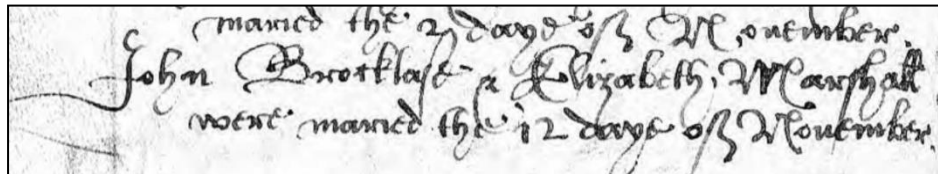 maried the 2 daye of November.
John Brocklase & Elizabeth Marshall
were maried the 12 daye of November.